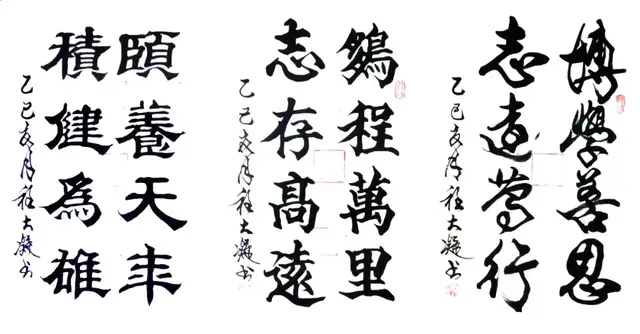 頤養天年
積健為雄
乙巳夏月程大凝书
鵬程萬里
志存高遠
乙巳夏月程大凝书
博學善思
志遠篤行
乙巳夏月程大凝书